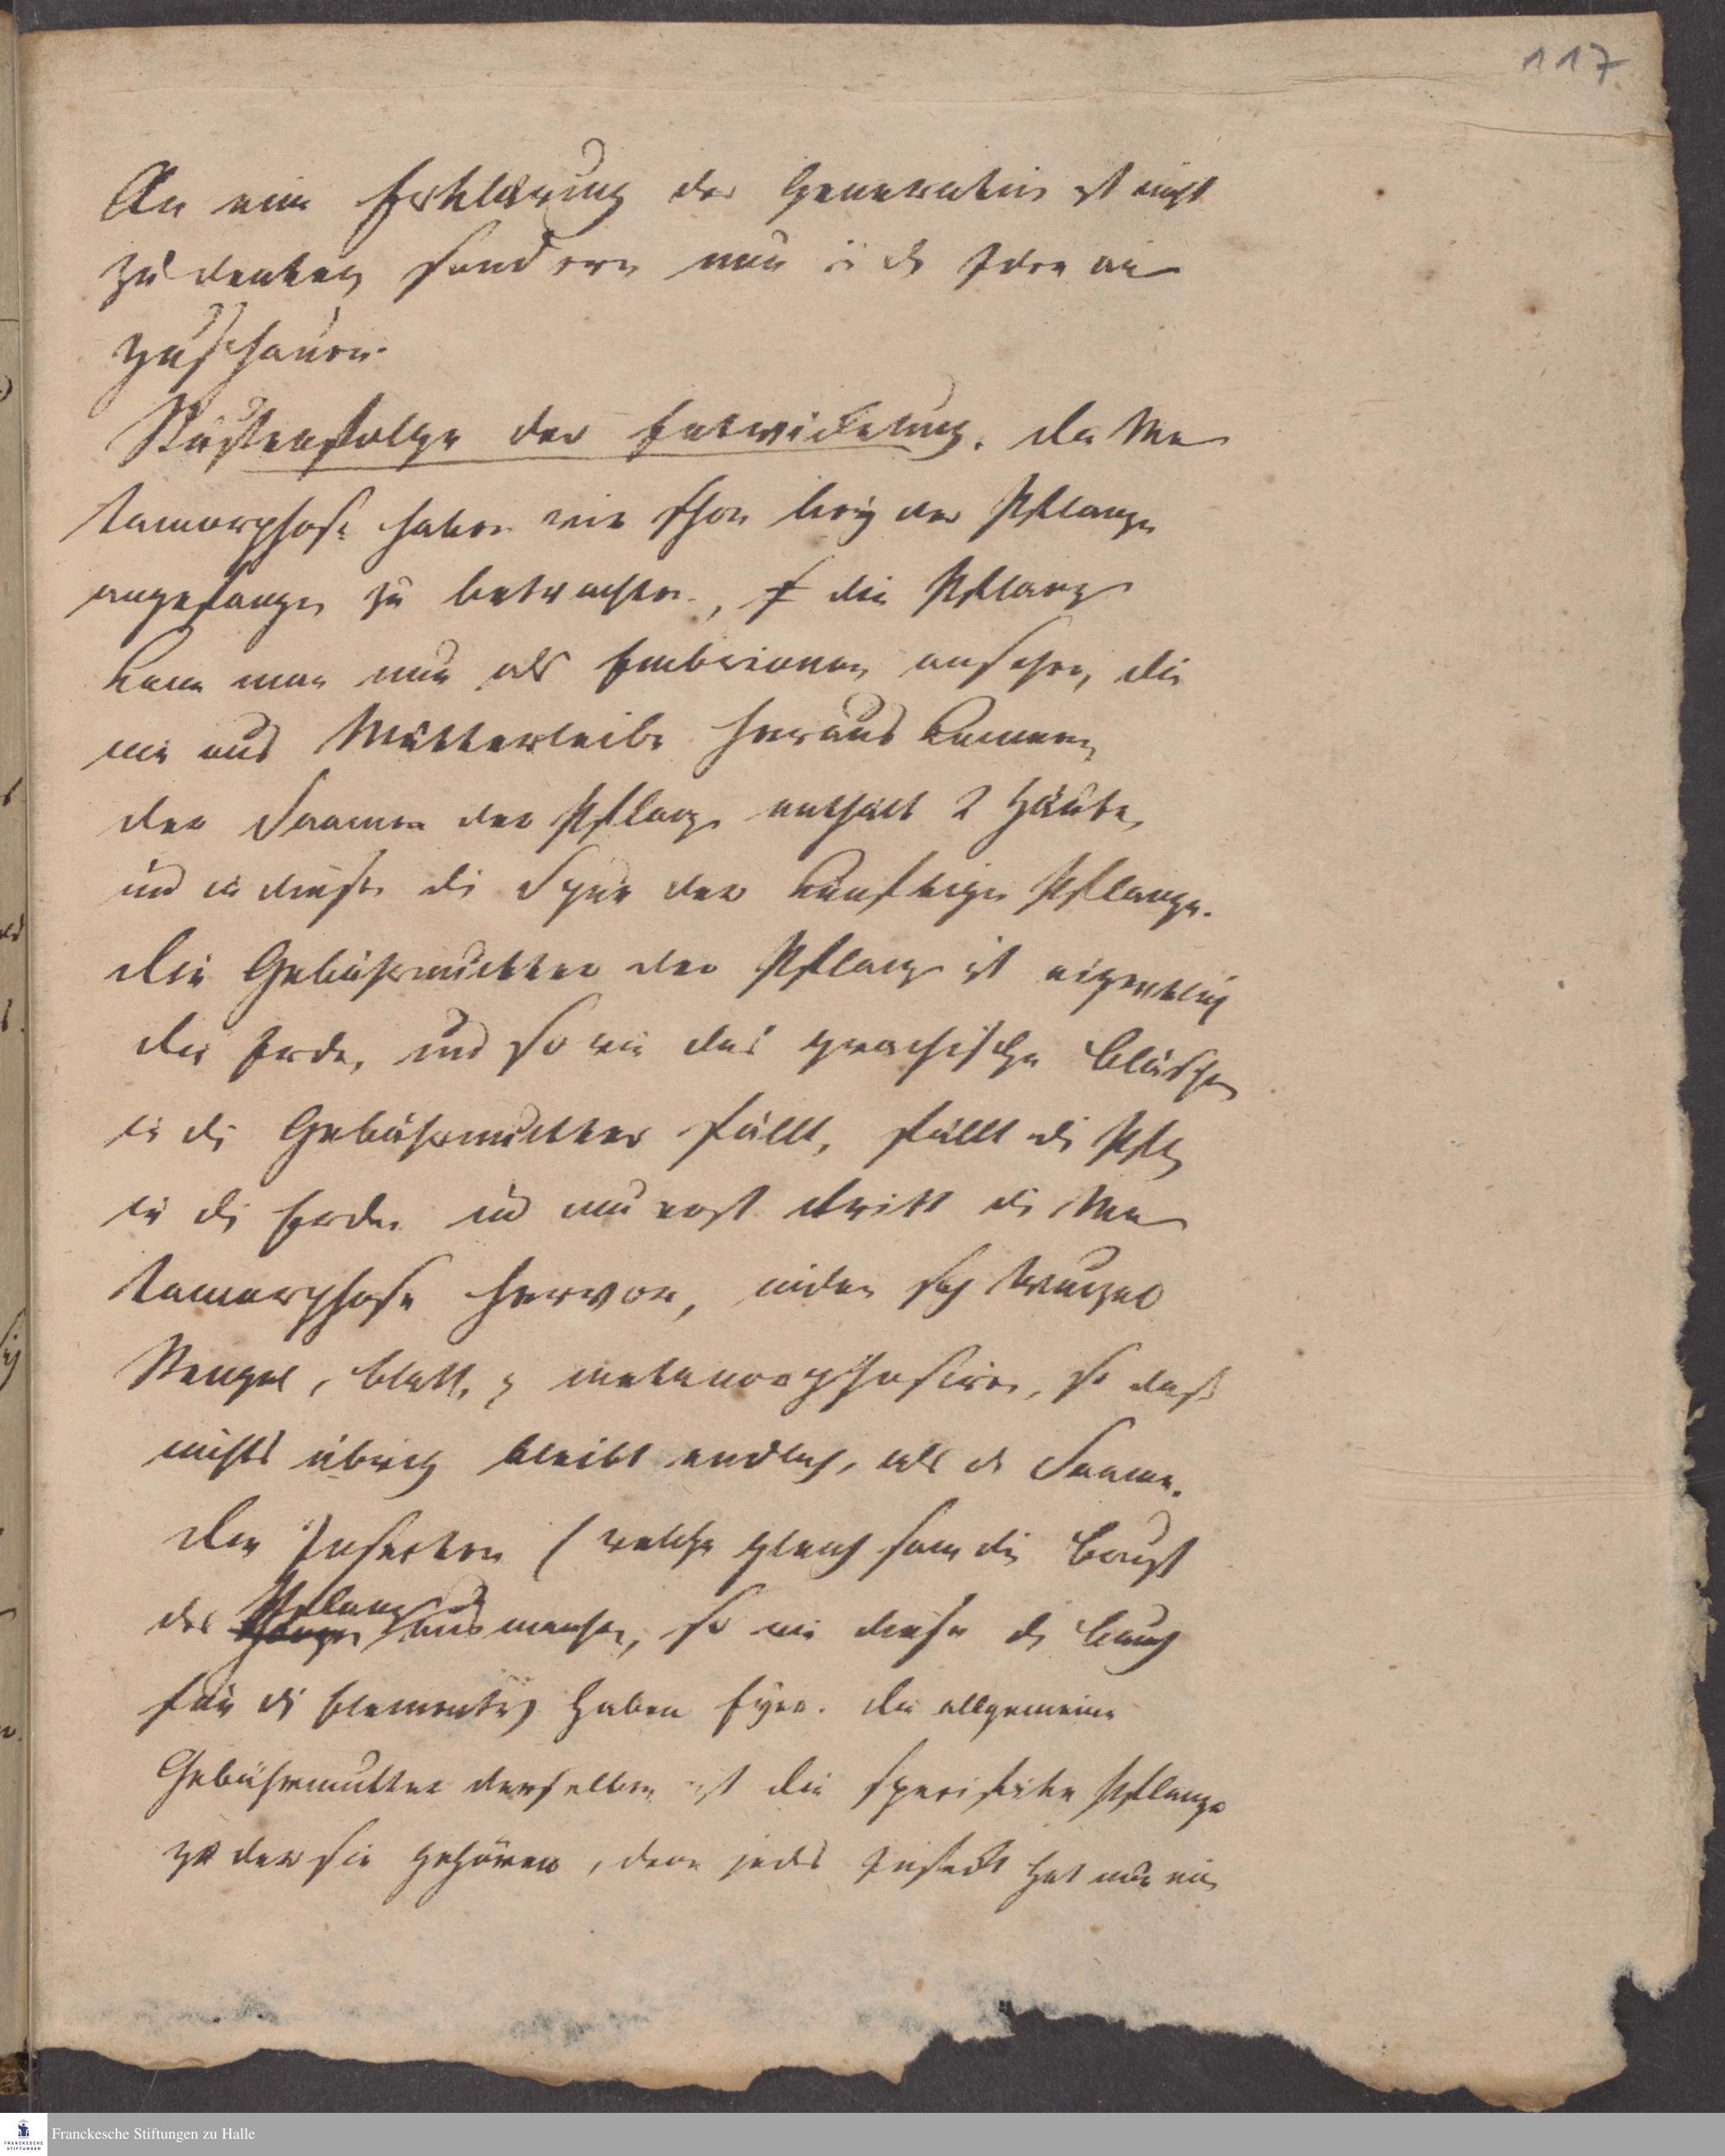 117
An eine Erklärung der Generation ist nicht
zu denken sondern nur in der Idee an
zuschauen.
Stuffenfolge der Entwickelung. die Me
tamorphose haben wir schon bey der Pflanze
angefangen zu betrachten, die Pflanze
kann man nur als Embrionen ansehen, die
nie aus Mutterleibe heraus kommen,
der Saamen der Pflanze enthält 2 Häute,
und in diesen die Spur der künftigen Pflanze.
die Gebährmutter der Pflanze ist eigentlich
die Erde, und so wie das graafische Bläschen
in die Gebährmutter fällt, fällt die Pflz
in die Erde und nun erst tritt die Me
tamorphose hervor, indem sich Wurzel
Stengel, Blatt, metamorphosiren, so daß
nichts übrig bleibt endlich, als der Saame.
Die Insecten (welche gleichsam die Brust
der Pflanze ausmachen, so wie diese den Bauch
für die Elemente) haben Eyer. die allgemeine
Gebährmutter derselben ist die specifische Pflanze
zu der sie gehören, denn jedes Insect hat nur ein
Franckesche Stiftungen zu Halle
FRANCKESCHE
STIFTUNGEN